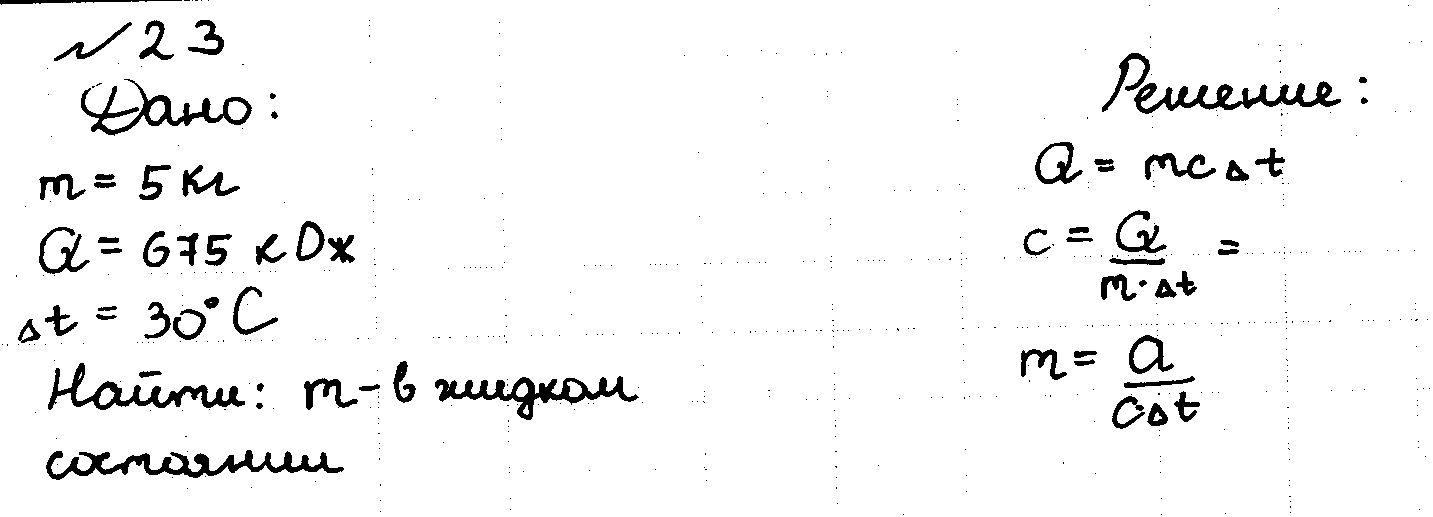 №23
Дано:
m = 5 кг
Q = 675 кДж
Δt = 30°C
Найти: m - в жидком
состоянии
Решение:
Q = mcΔt
c = Q / m·Δt =
m = Q / c·Δt